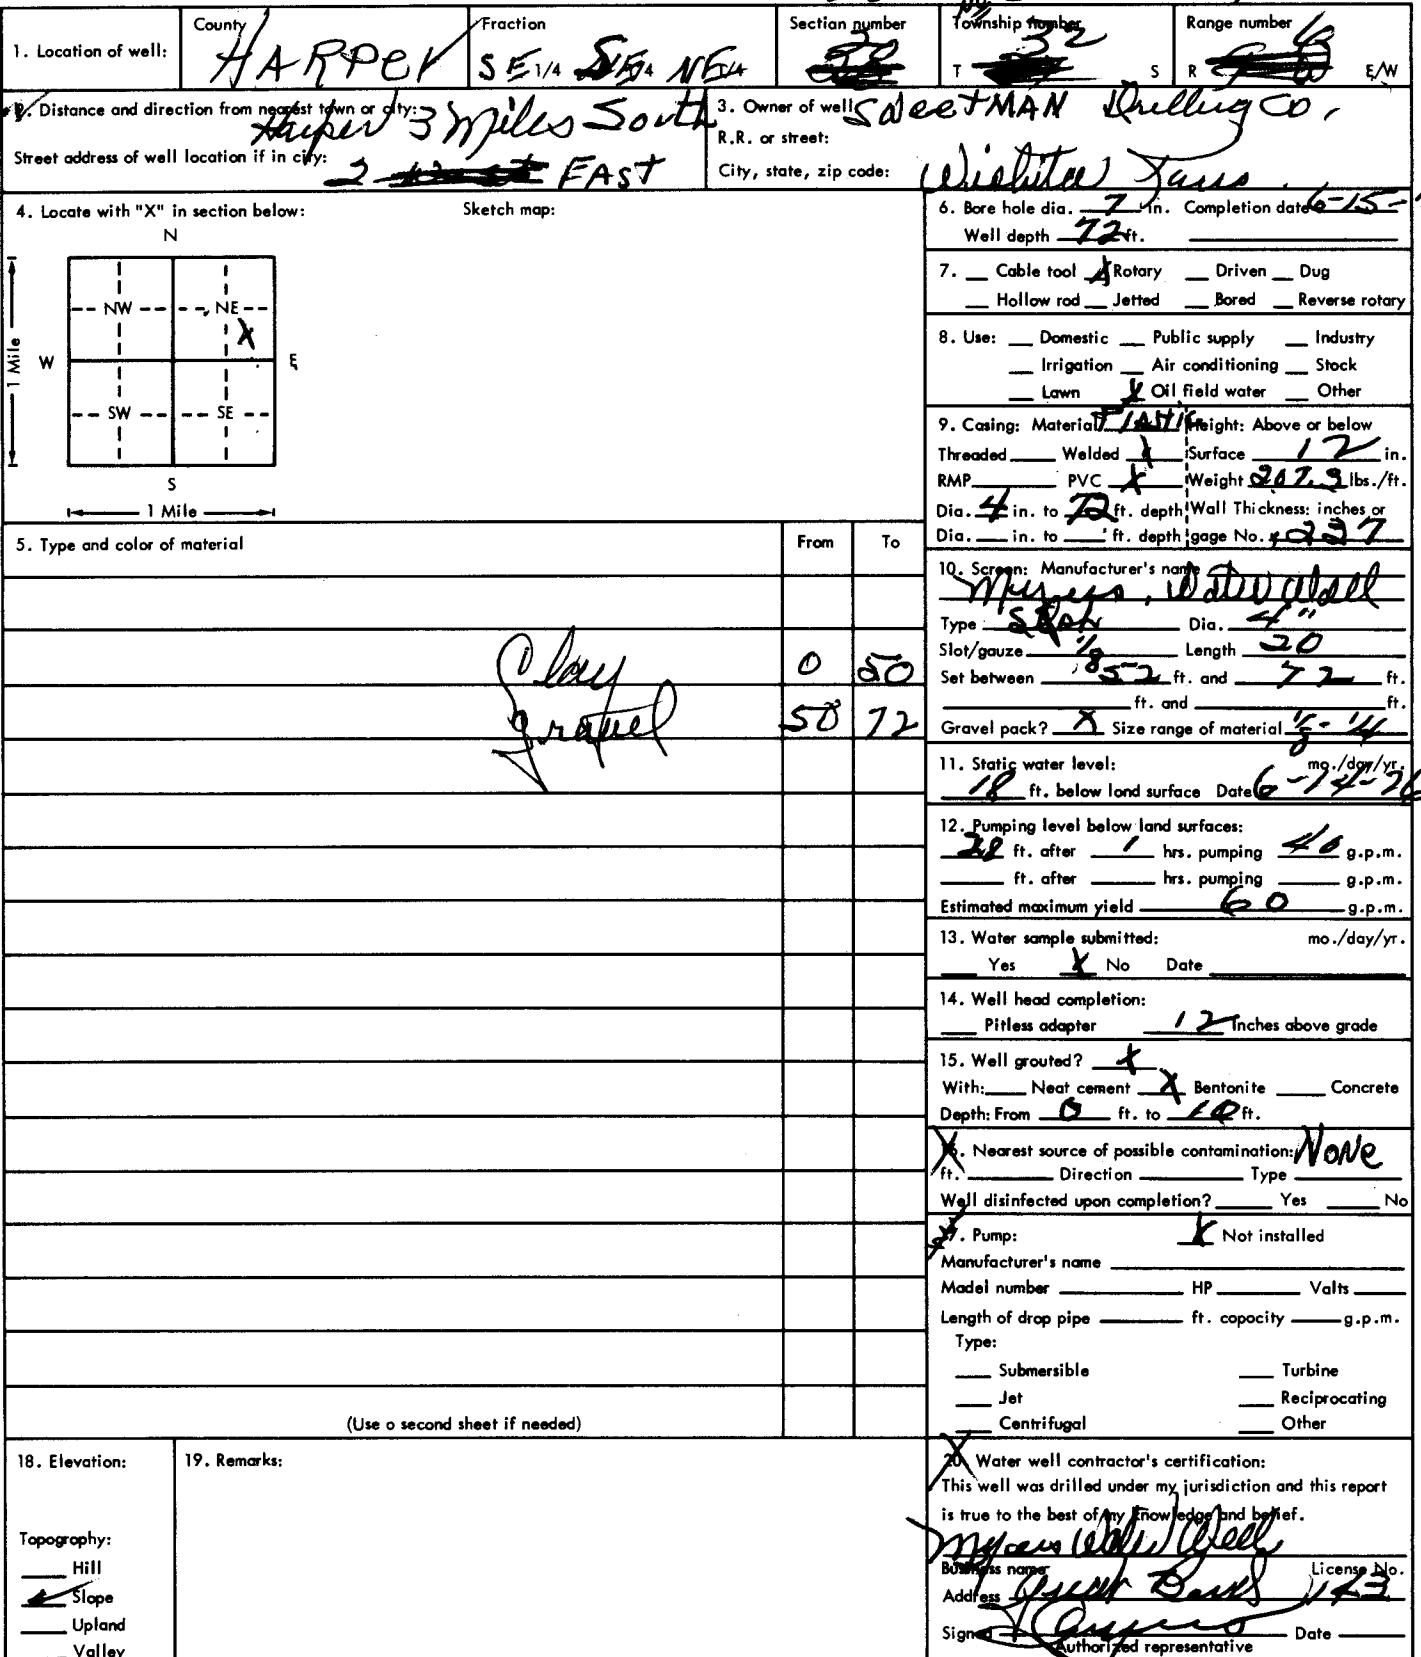 County Fraction Section number Township number Range number
1. Location of well: HARPER SE 1/4 SE 1/4 NE 1/4 20 T 32 S R 6 E/W
2. Distance and direction from nearest town or city: Harper 3 Miles South
Street address of well location if in city: 2 EAST
3. Owner of well: SweetMAN Drilling Co,
R.R. or street:
City, state, zip code: Wichita Kans.
4. Locate with "X" in section below: Sketch map:
N
NW NE
X
1 Mile W E
SW SE
S
1 Mile
5. Type and color of material From To
Clay 0 50
gravel 50 72
(Use o second sheet if needed)
6. Bore hole dia. 7 in. Completion date 6-15-
Well depth 72 ft.
7. Cable tool X Rotary Driven Dug
Hollow rod Jetted Bored Reverse rotary
8. Use: Domestic Public supply Industry
Irrigation Air conditioning Stock
Lawn X Oil field water Other
9. Casing: Material Plastic Height: Above or below
Threaded Welded X Surface 12 in.
RMP PVC X Weight 207.3 lbs./ft.
Dia. 4 in. to 72 ft. depth Wall Thickness: inches or
Dia. in. to ft. depth gage No. .237
10. Screen: Manufacturer's name
Myers, Water Well
Type Dia. 4"
Slot/gauze 1/8 Length 20
Set between 52 ft. and 72 ft.
ft. and ft.
Gravel pack? X Size range of material 1/8 - 1/4
11. Static water level: mo./day/yr.
18 ft. below lond surface Date 6-14-76
12. Pumping level below land surfaces:
28 ft. after 1 hrs. pumping 40 g.p.m.
ft. after hrs. pumping g.p.m.
Estimated maximum yield 60 g.p.m.
13. Water sample submitted: mo./day/yr.
Yes X No Date
14. Well head completion:
Pitless adapter 12 Inches above grade
15. Well grouted? X
With: Neat cement X Bentonite Concrete
Depth: From 0 ft. to 10 ft.
16. Nearest source of possible contamination: NoNe
ft. Direction Type
Well disinfected upon completion? Yes No
17. Pump: X Not installed
Manufacturer's name
Model number HP Valts
Length of drop pipe ft. capocity g.p.m.
Type:
Submersible Turbine
Jet Reciprocating
Centrifugal Other
18. Elevation:
Topography:
Hill
Slope
Upland
Valley
19. Remarks:
20. Water well contractor's certification:
This well was drilled under my jurisdiction and this report
is true to the best of my knowledge and belief.
Myers Water Well
Business name License No.
Address Great Bend 143
Signed Date
Authorized representative